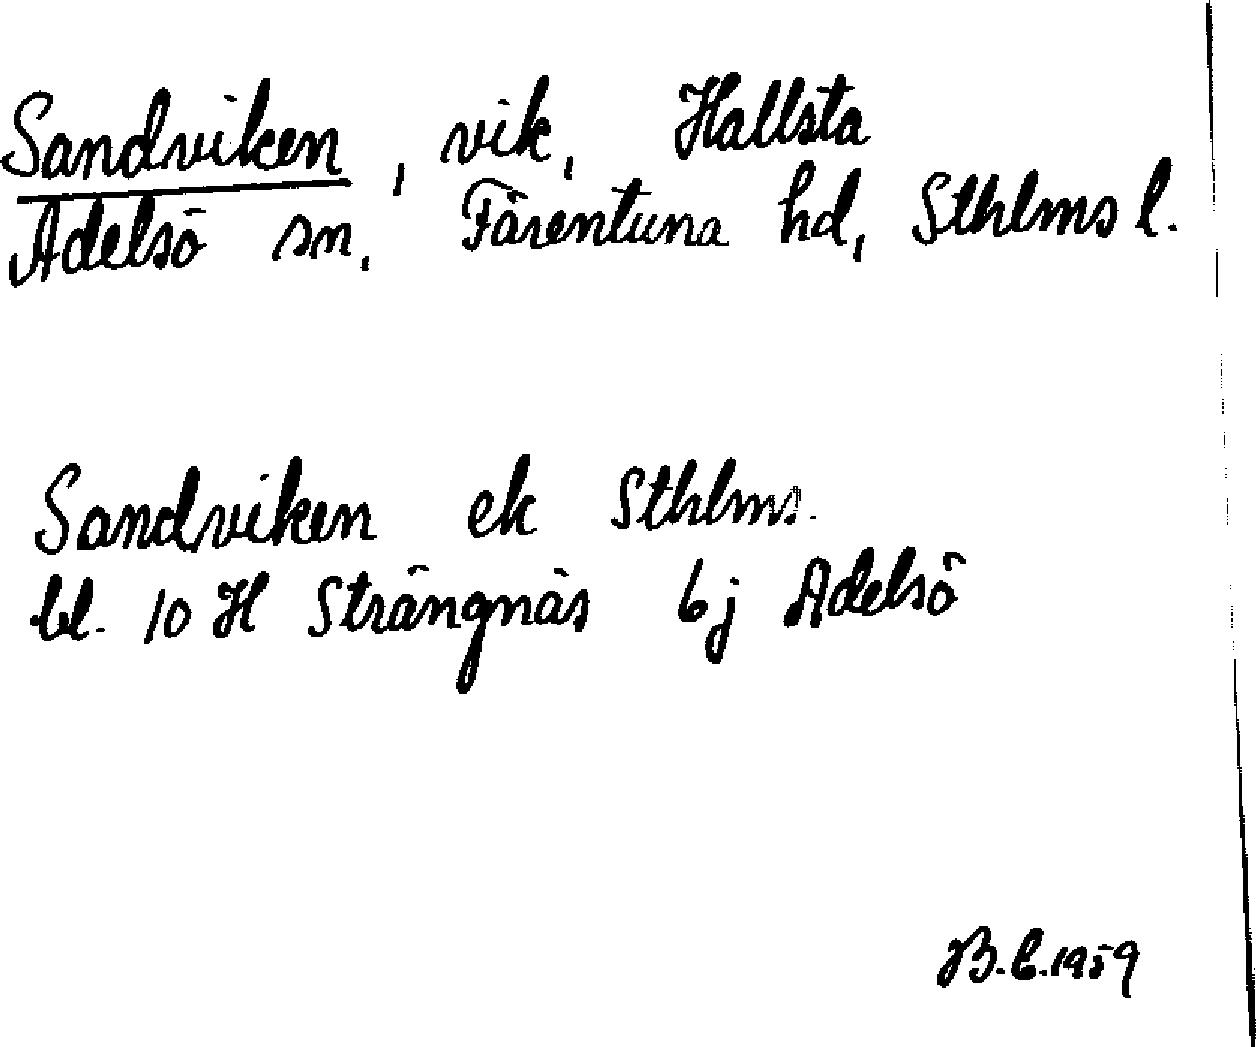 Sandviken, vik, Hallsta
Adelsö sn, Färentuna hd, Sthlms l.
Sandviken ek Sthlms.
bl. 10 H Strängnäs 6j Adelsö
B.C.1959